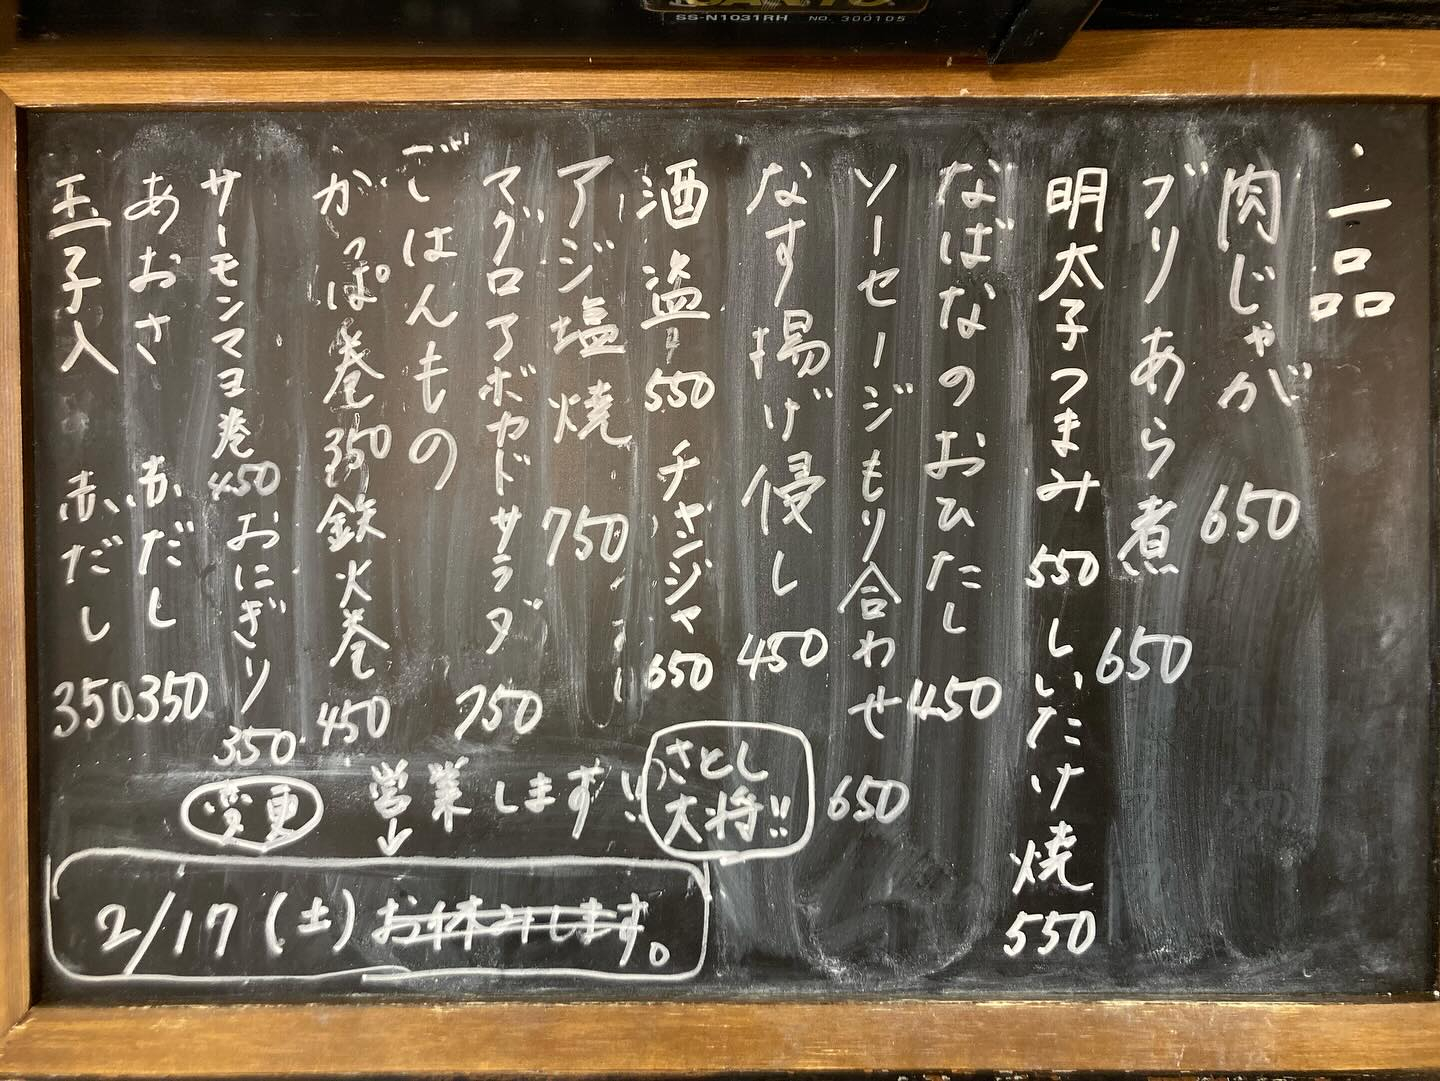 SS-N1031RH NO. 300105
・一品
肉じゃが 650
ブリあら煮 650
明太子つまみ 550 しいたけ焼 550
なばなのおひたし 450
ソーセージもり合わせ 650
なす揚げ侵し 450
酒盗 550 チャンジャ 650
アジ塩焼 750
マグロアボカドサラダ 750
ごはんもの
かっぱ巻 350 鉄火巻 450
サーモンマヨ巻 450 おにぎり 350
あおさ 赤だし 350
玉子入 赤だし 350
変更 営業します!! さとし大将!!
↓
2/17(土) お休みします。